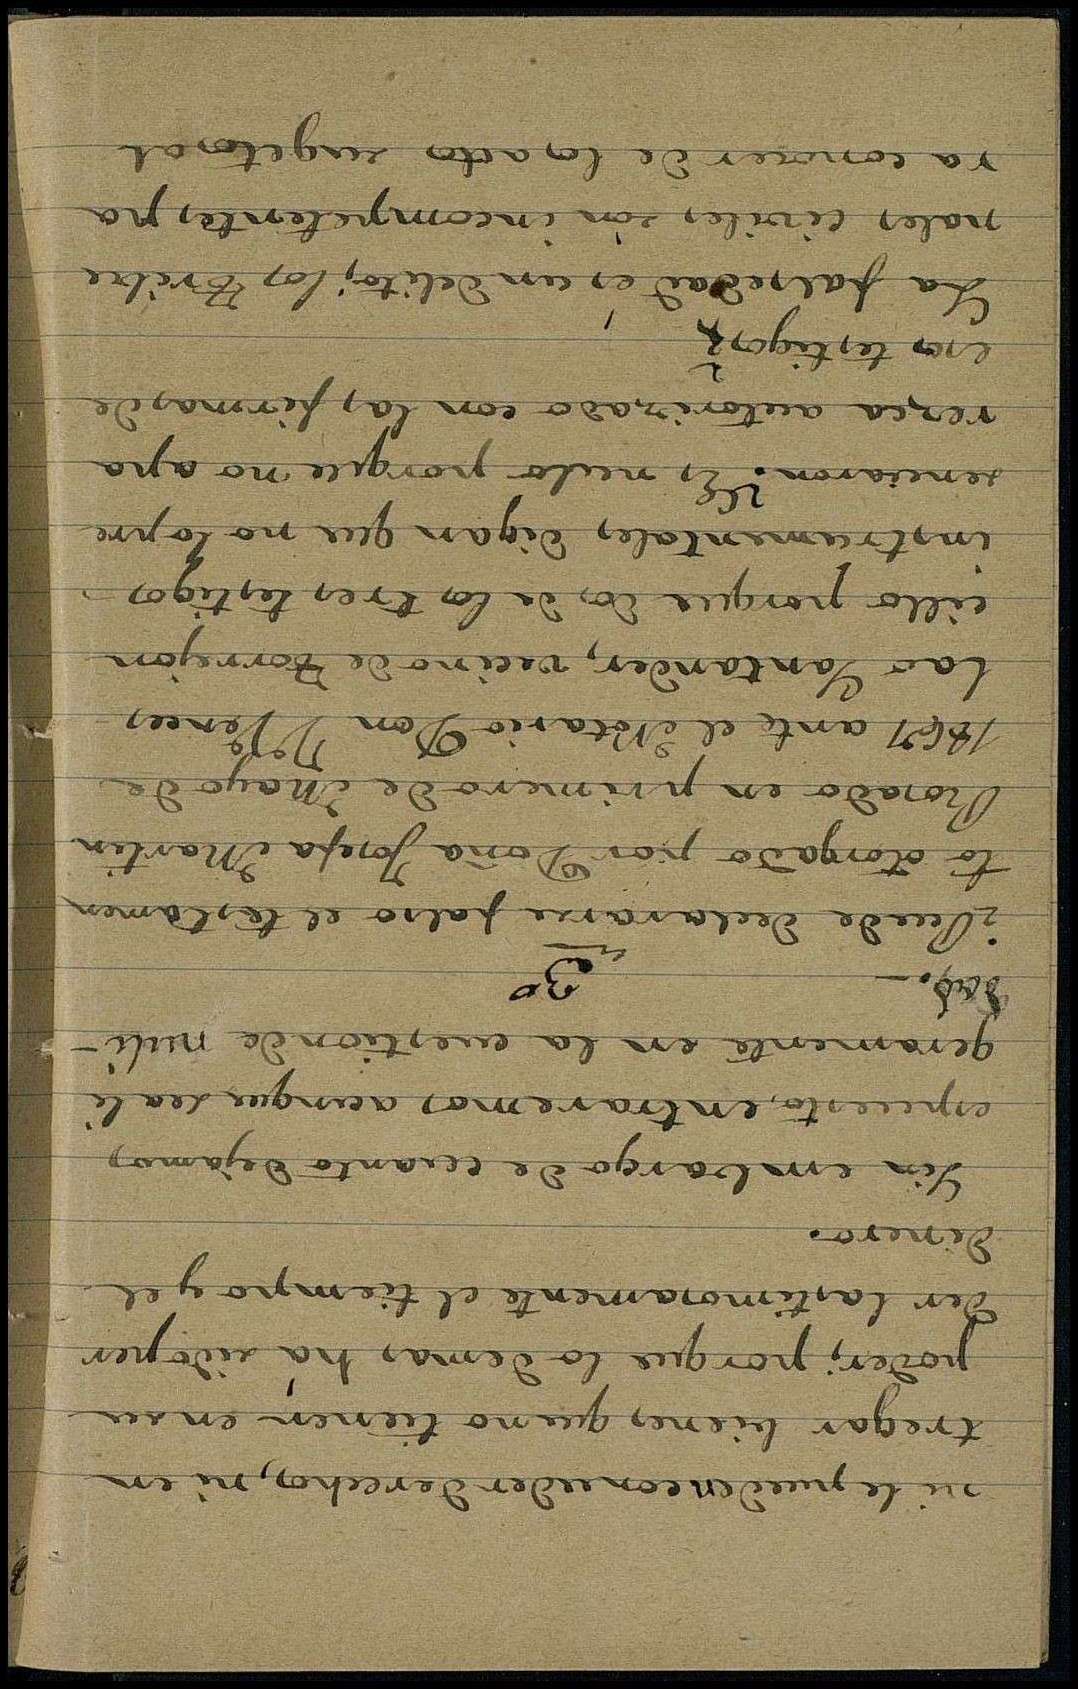 ni le pueden conceder derechos, ni en
tregar bienes que no tienen en su
poder; porque lo demas há sido per
der lastimosamente el tiempo y el
dinero.
Sin embargo de cuanto dejamos
espuesto, entraremos aunque sea li
geramente en la cuestion de nuli-
dad.-
3º
¿Puede declararse falso el testamen
to otorgado por Doña Josefa Martin
Rosado en primero de Mayo de
1867 ante el Notario Don Vences
lao Santander, vecino de Torrejon
cillo porque dos de los tres testigos
instrumentales digan que no lo pre
senciaron. ¿Es nulo porque no apa
rezca autorizado con las firmas de
esos testigos?
La falsedad es un delito; los Tribu
nales civiles són incompetentes pa
ra conocer de los actos sugetos al